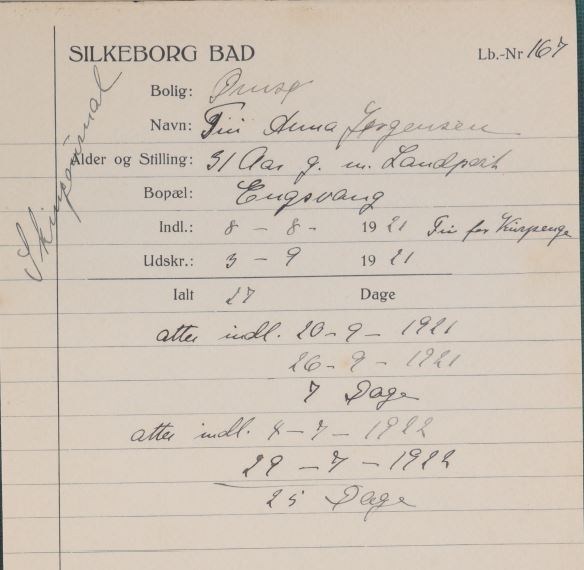 SILKEBORG BAD
Lb.-Nr 167
Bolig:
Navn: Anna Jørgensen
Alder og Stilling: 31 Aar g. m. Landpost
Bopæl: Engsvang
Indl.: 8 - 8 - 1921 Fri for Kurpenge
Udskr.: 3 - 9 1921
Ialt 27 Dage
atter indl. 20 - 9 - 1921
26 - 9 - 1921
7 Dage
atter indl. 4 - 7 - 1922
29 - 7 - 1922
25 Dage